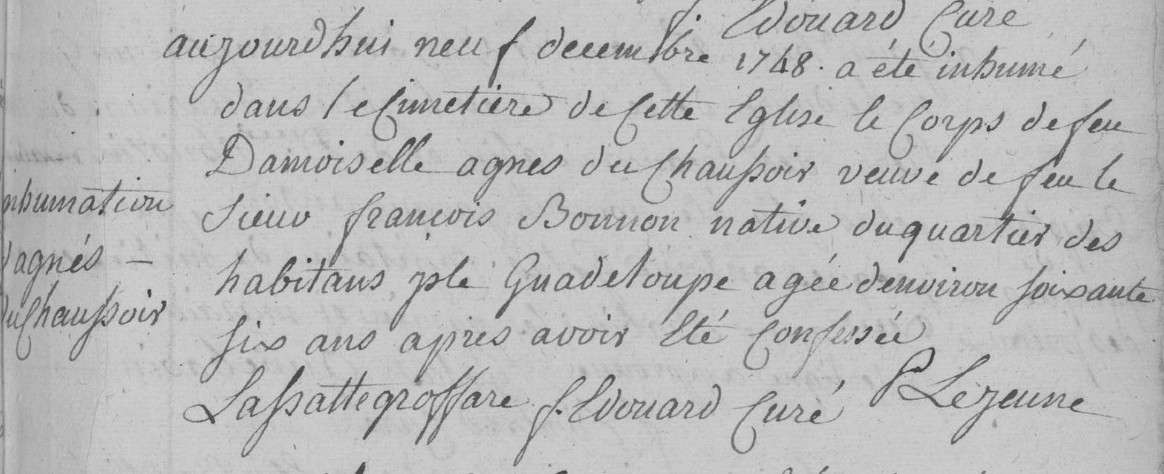 f. Edouard Curé
aujourdhui neuf decembre 1748. a été inhumé
dans le Cimetière de Cette Eglise le Corps de feu
Damoiselle agnes du Chaussoir veuve de feu le
Sieur françois Bonnon native du quartier des
habitans jsle Guadeloupe agée denviron soixante
six ans apres avoir Eté Confessée
Lassattegroffare f. Edouard Curé P Lezeune
inhumation
d'agnés —
du Chaussoir